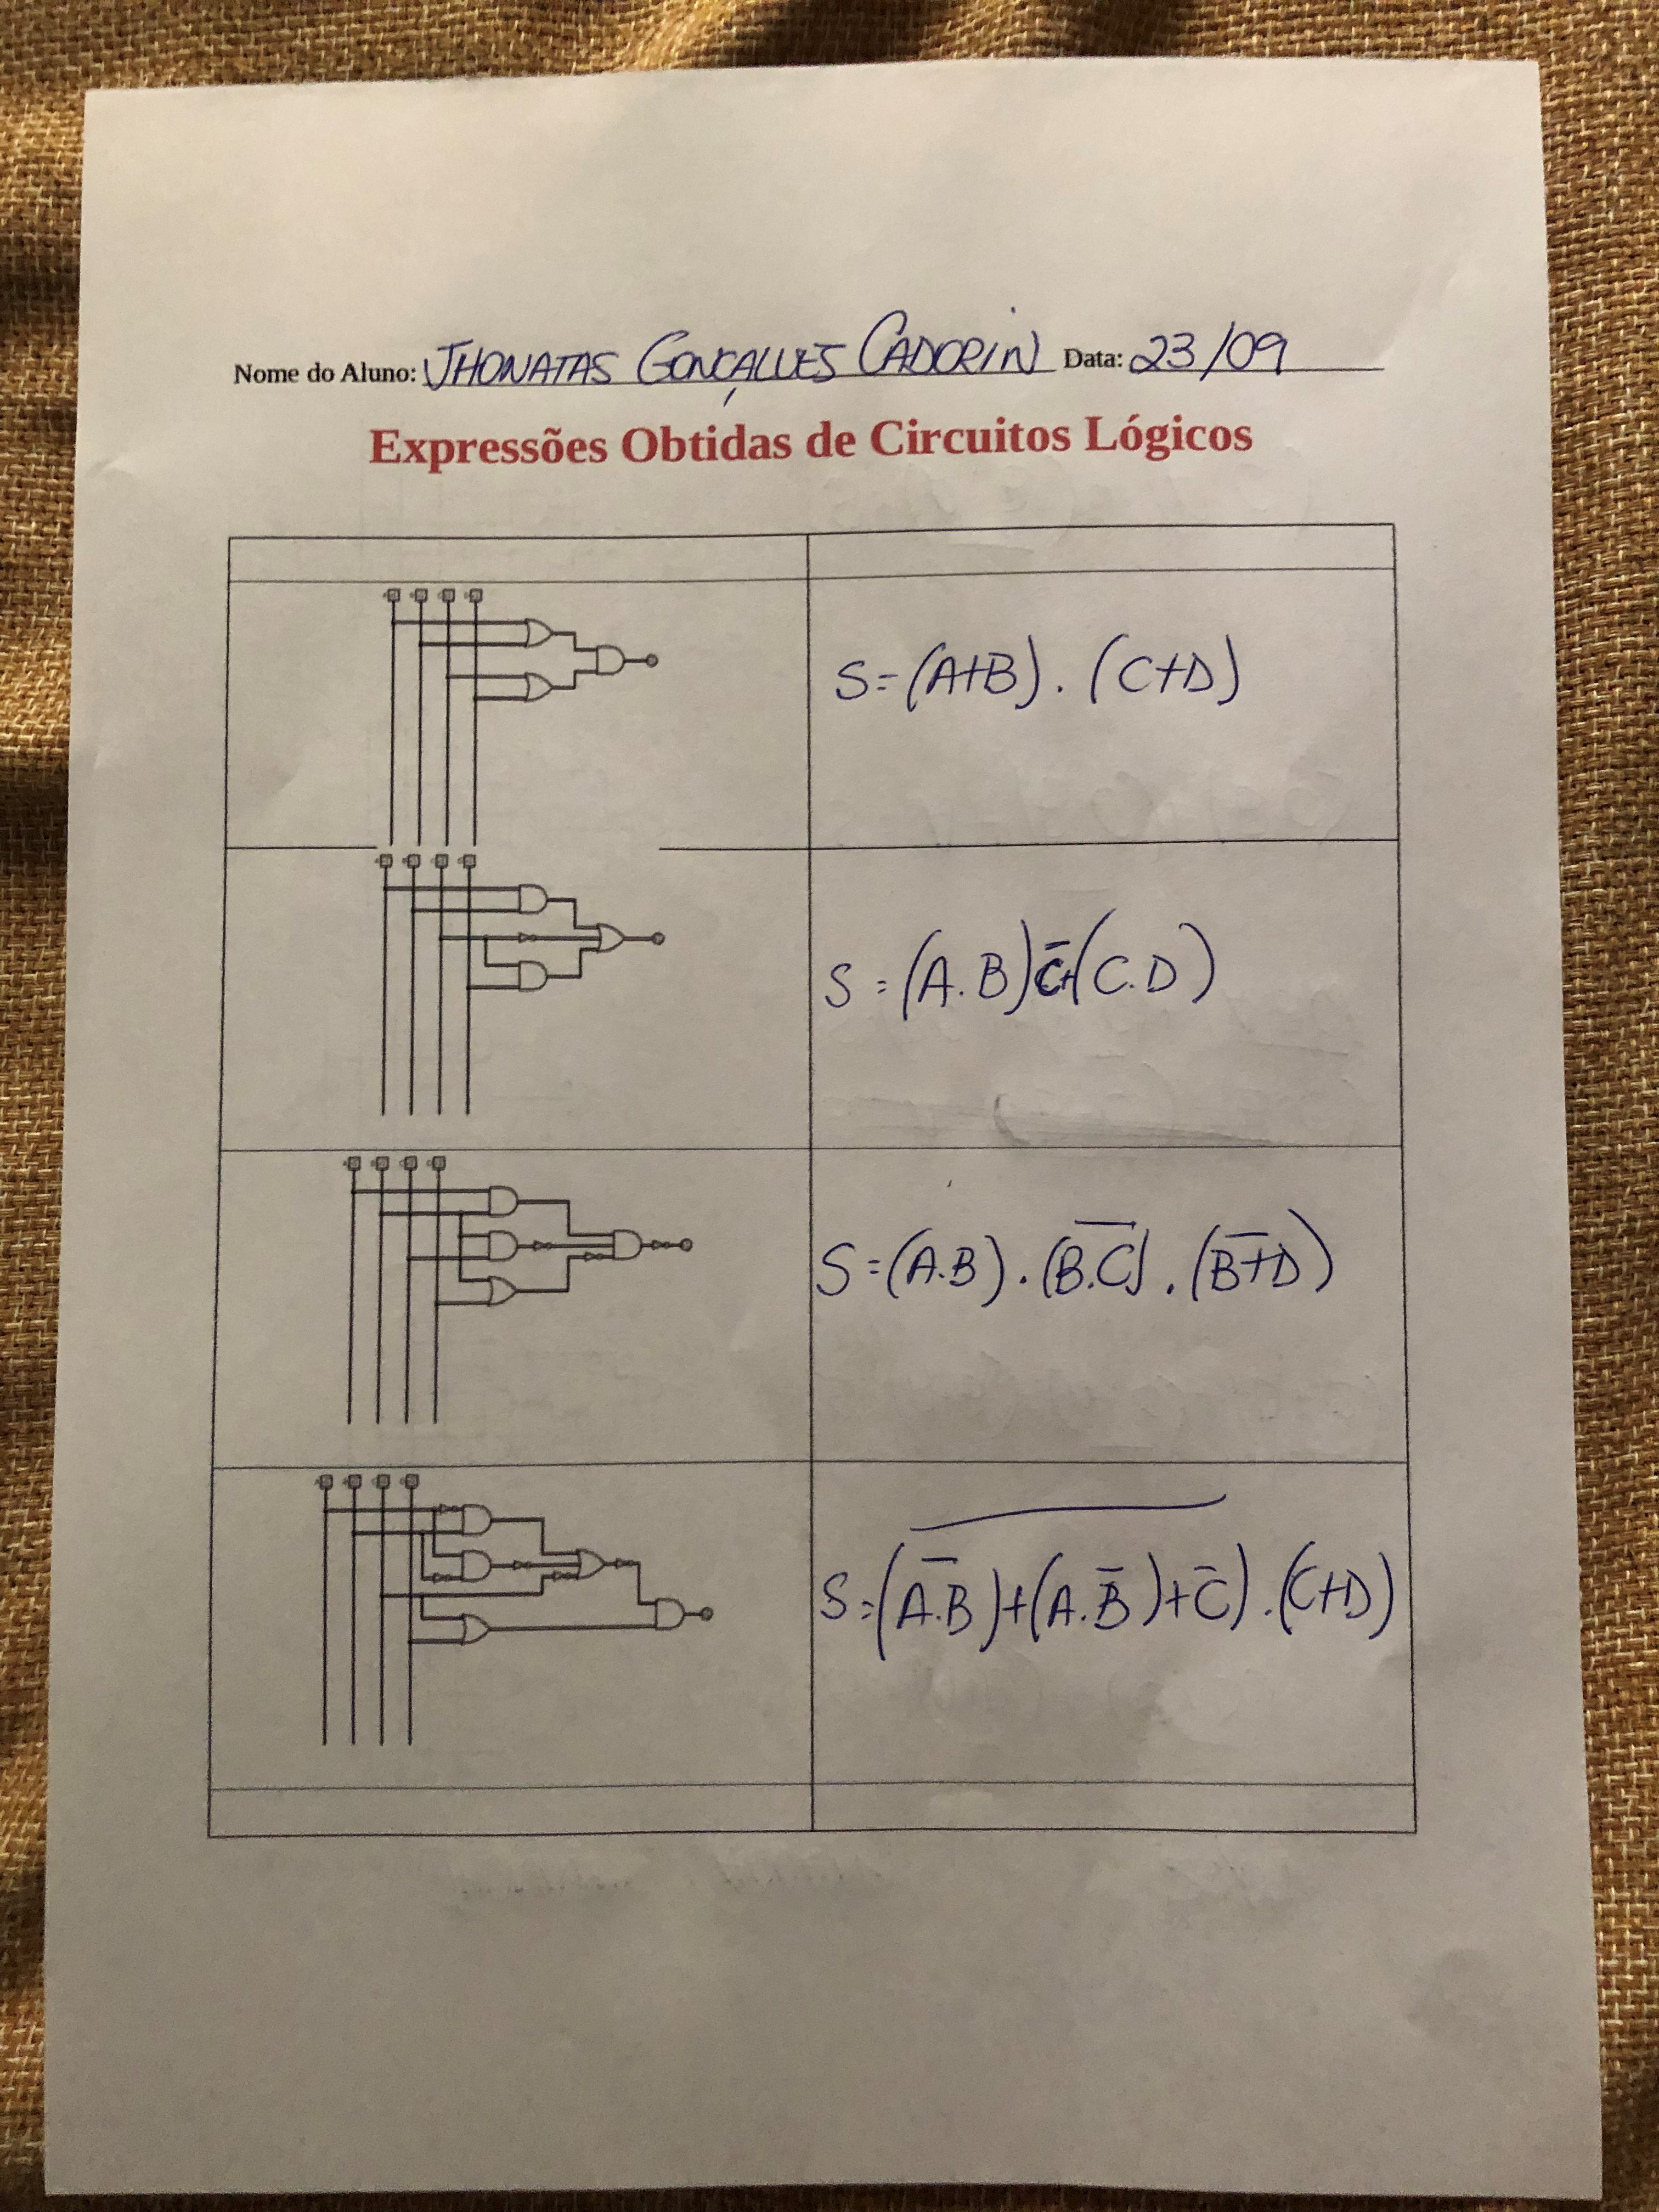 Nome do Aluno: JHONATAS GONÇALVES CADORIN Data: 23/09
Expressões Obtidas de Circuitos Lógicos
S=(A+B).(C+D)
S=(A.B)C̅+(C.D)
S=(A.B).(B.C)̅.(B+D)̅
S=(A̅.B)+(A.B̅)+C̅).(C+D)